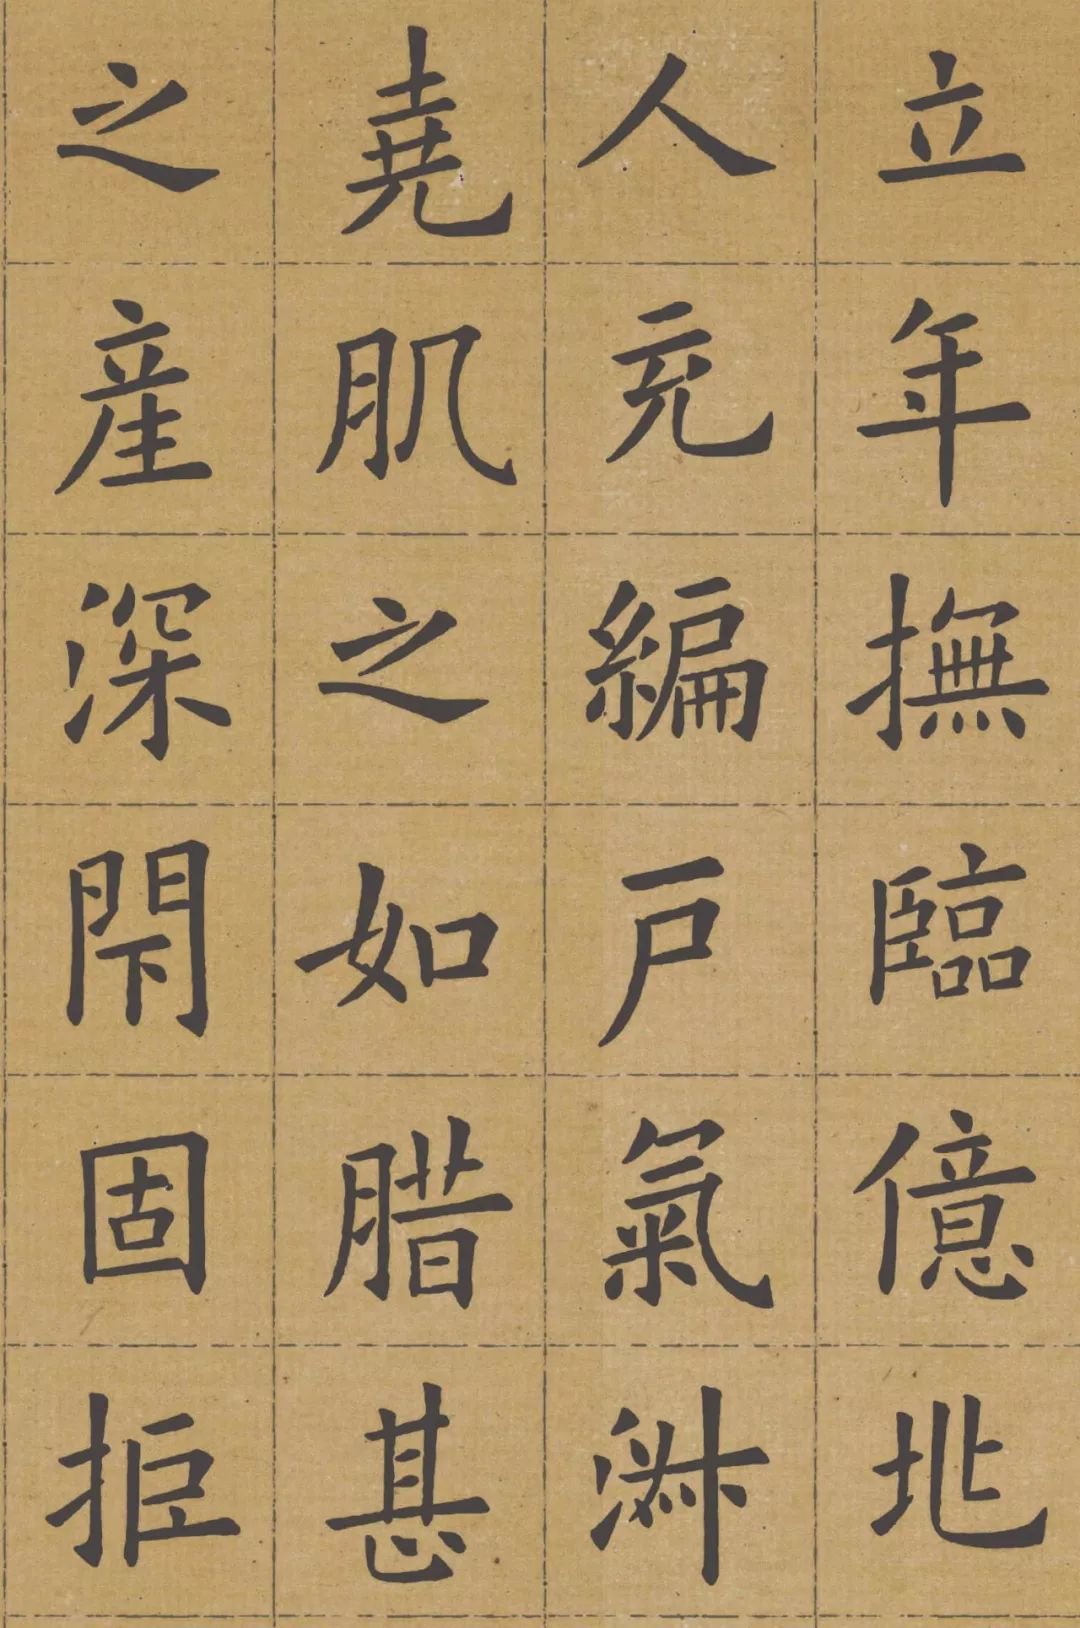 立年撫臨億兆
人充編戶氣
堯肌之如腊甚
之產深閇固拒